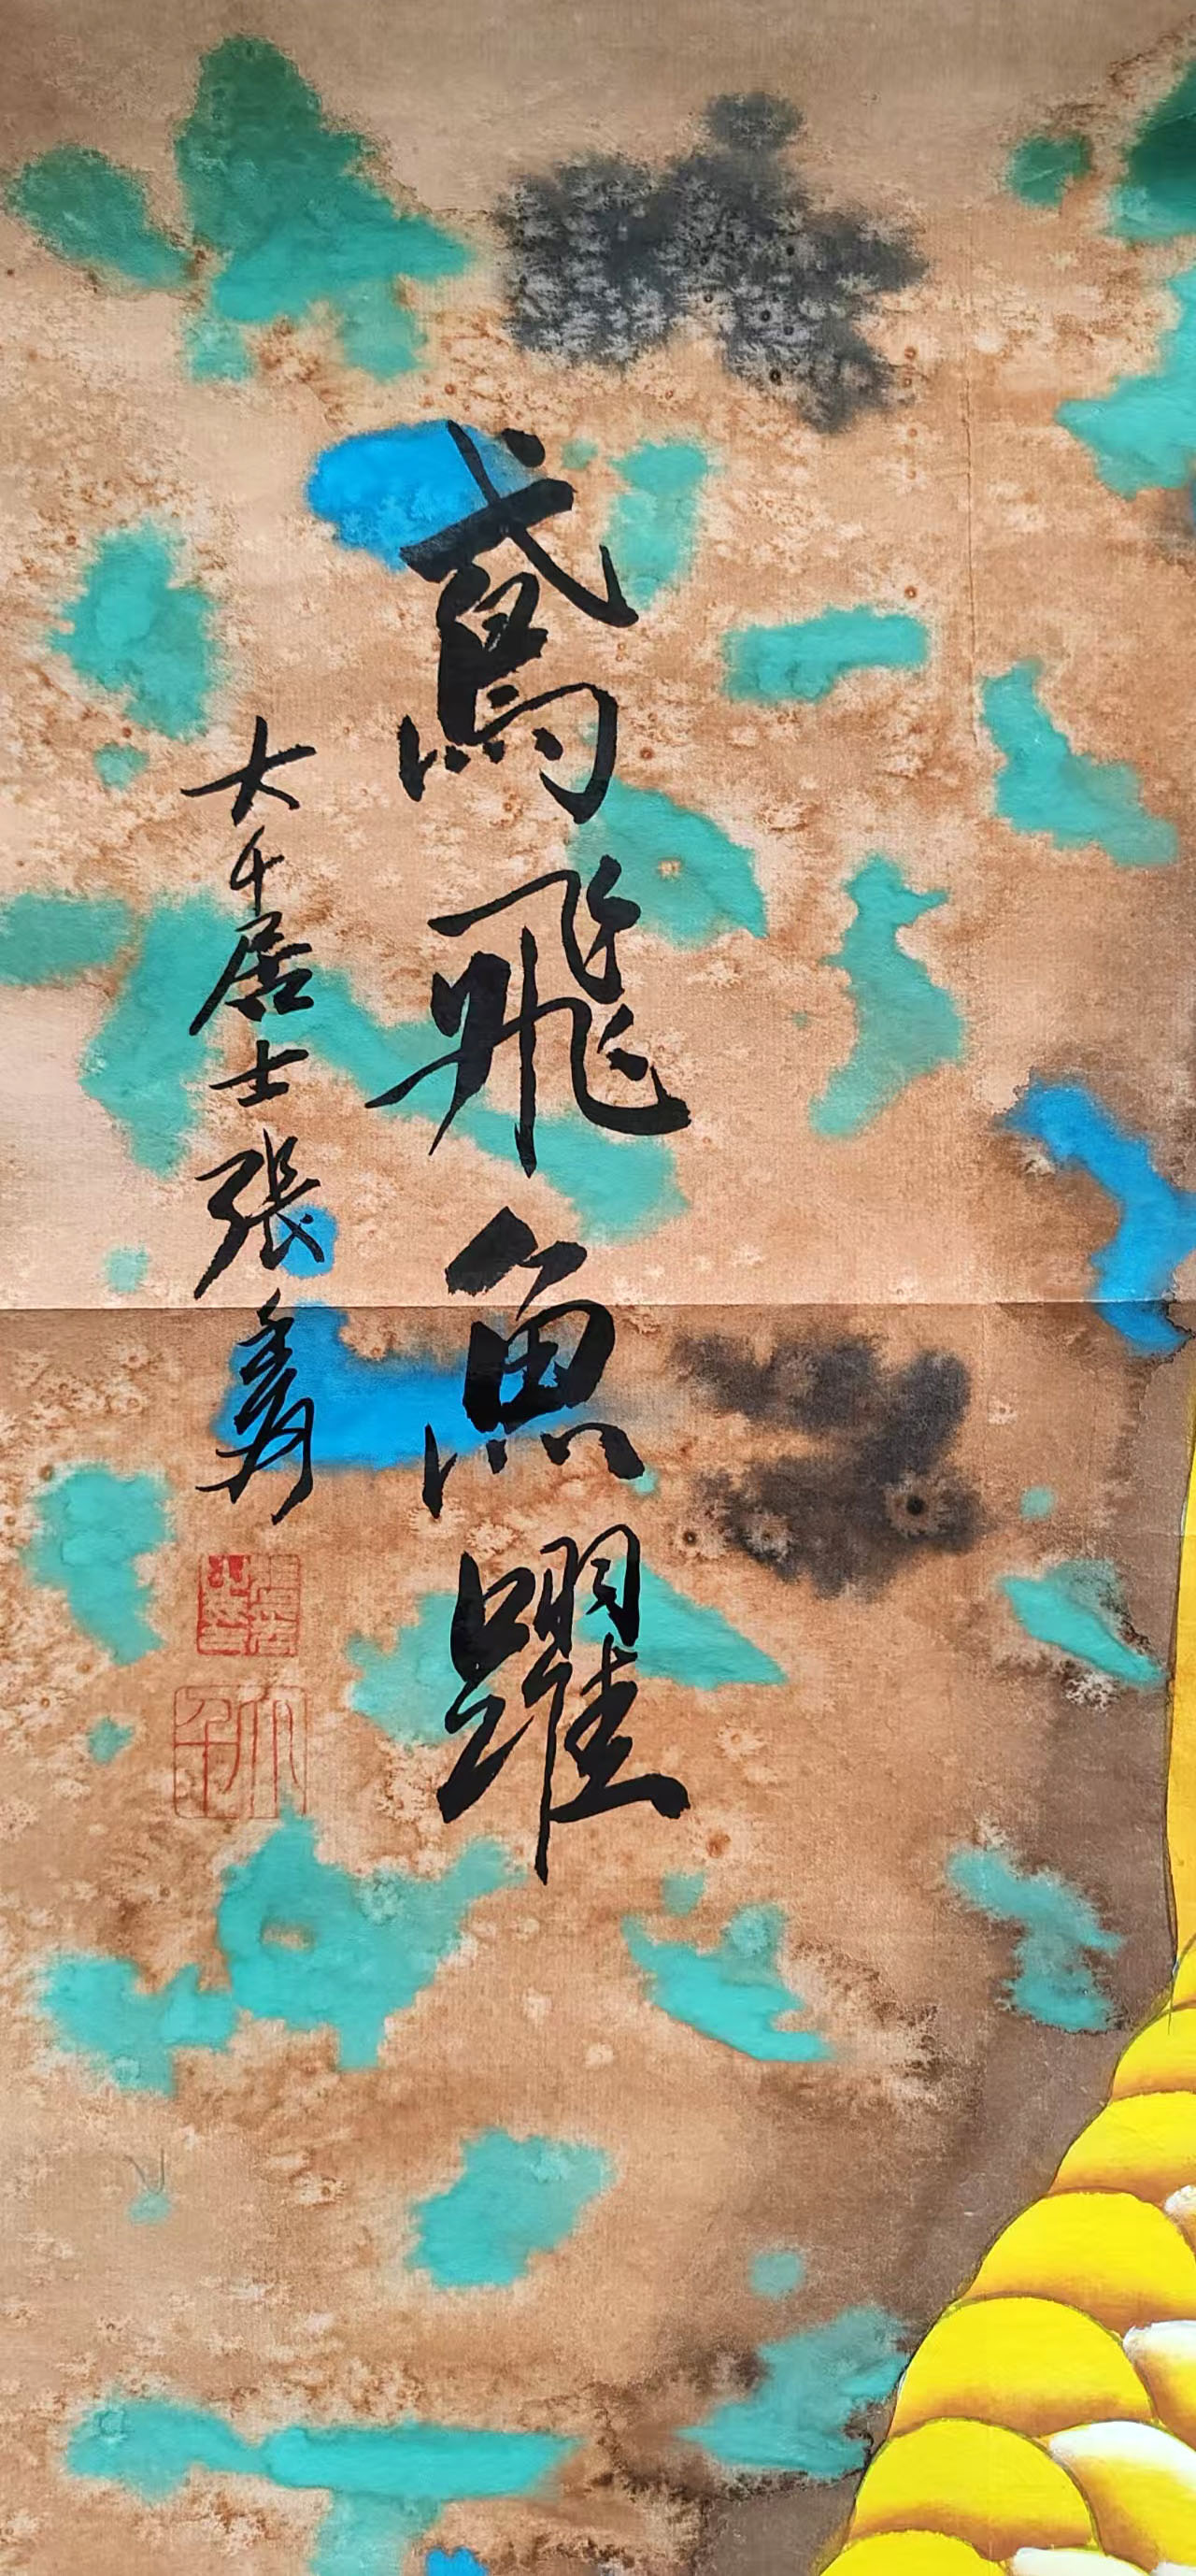 鳶飛魚躍
大千居士張爰
大千